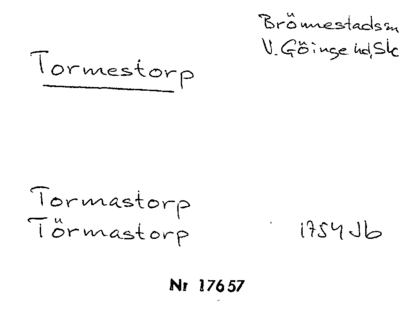 Brönnestads sn
V. Göinge hd, Sk
Tormestorp
Tormastorp
Törmastorp 1754 Jb
Nr 17657